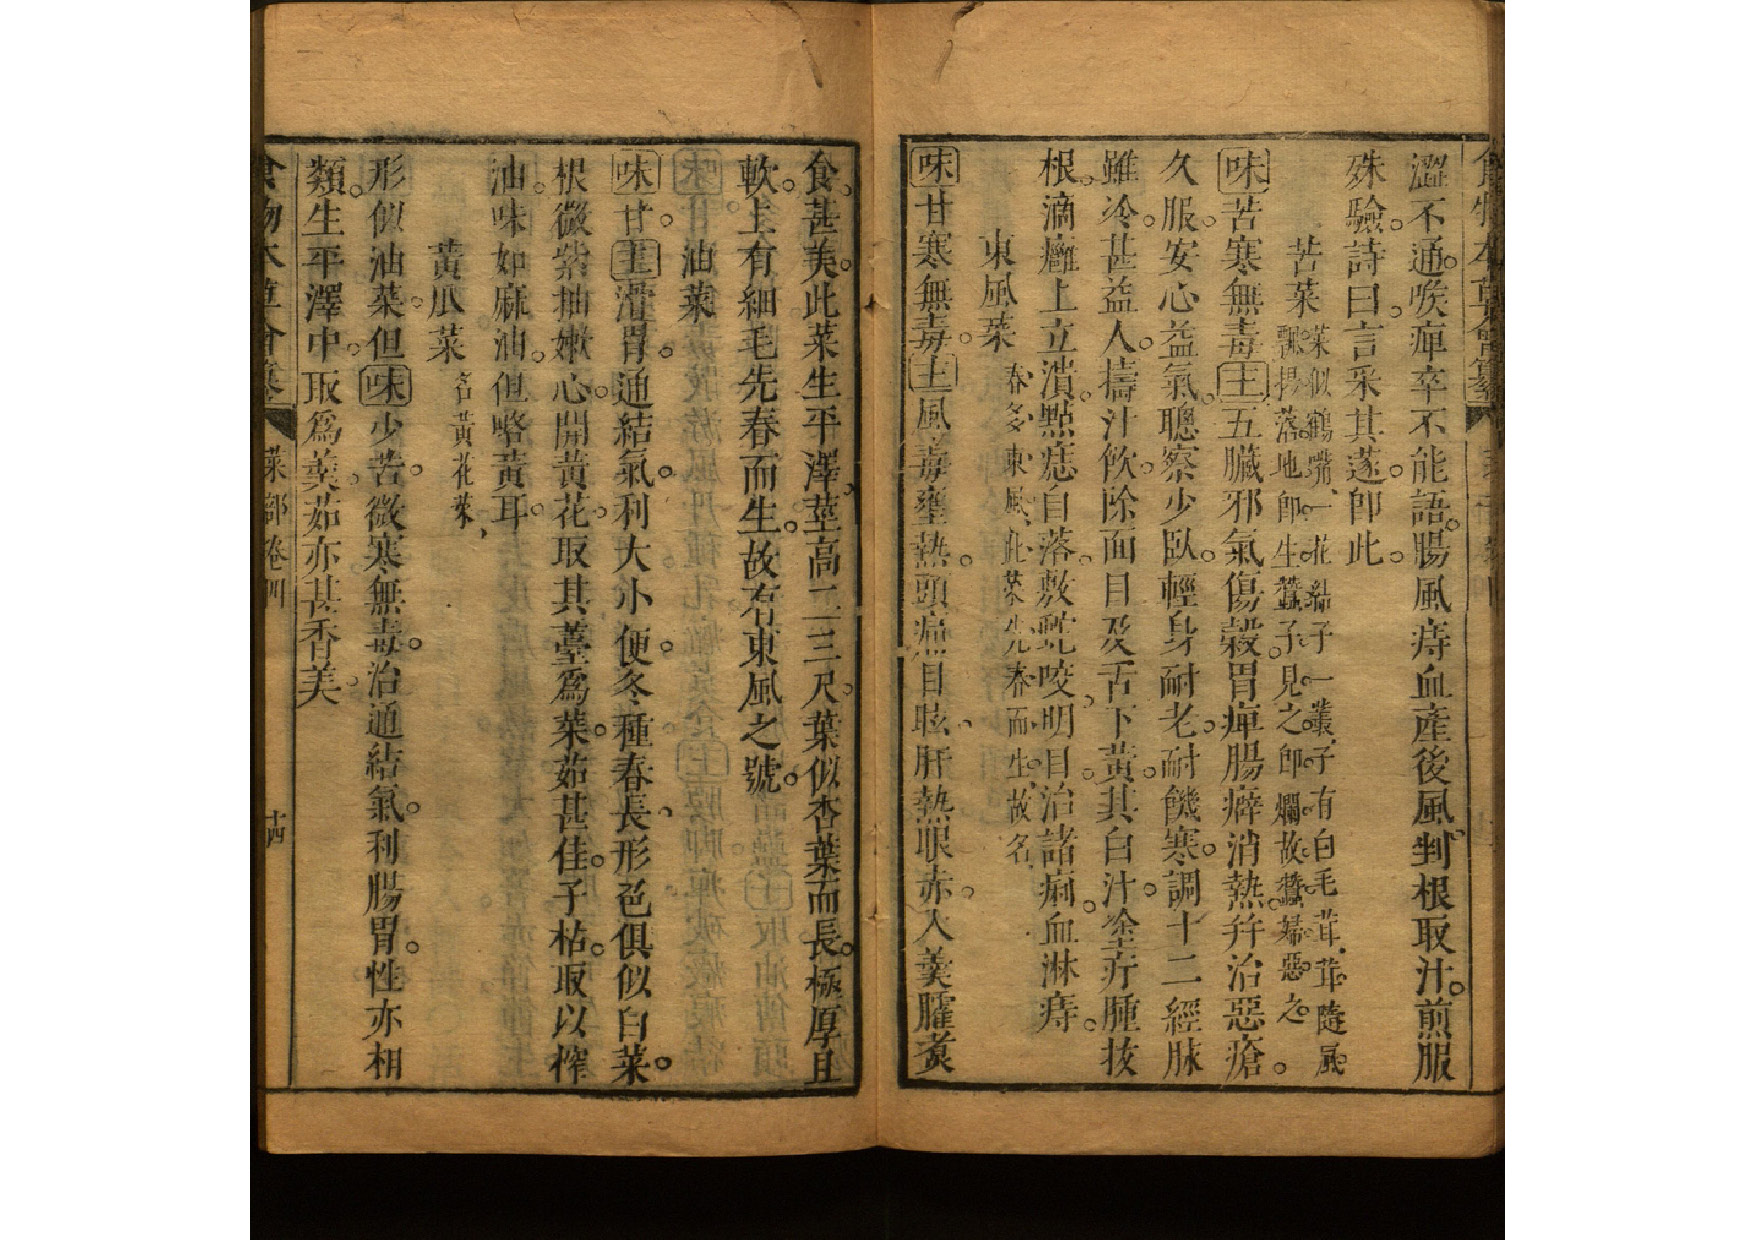 澀不通。喉痺卒不能語。腸風痔血產後風㓨根取汁。煎服
殊驗。詩曰。言采其蓫。即此。
苦菜 菜似鶴嘴、一花結子一叢、子有白毛茸茸、隨風
飄揚。落地即生。蠶子。見之即爛。故蠶婦惡之。
味苦寒無毒主五臟邪氣傷穀。胃痺腸癖消熱。幷治惡瘡。
久服安心益氣。聰察少臥。輕身耐老。耐饑寒。調十二經脉
雖冷。甚益人。擣汁飲。除面目及舌下黃。其白汁。塗疔腫拔
根。滴癰上立潰。點痣自落。敷蛇咬、明目。治諸痢。血淋痔。
東風菜 春多東風、此菜先春而生、故名
味甘寒無毒。主風毒壅熱。頭痛目眩、肝熱眼赤。入羹臛煮
食。甚美。此菜生平澤。莖高二三尺。葉似杏葉而長。極厚且
軟。上有細毛先春而生。故有東風之號。
油菜
味甘。主滑胃。通結氣。利大小便。冬種春長、形色俱似白菜。
根微紫抽嫩心。開黃花。取其薹為菜。茹甚佳。子枯。取以榨
油。味如麻油。但略黃耳。
黃瓜菜 名黃花菜、
形似油菜。但味少苦。微寒無毒。治通結氣。利腸胃。性亦相
類。生平澤中。取為羹。茹亦甚香美。
食物本草會纂 菜部卷四 十四